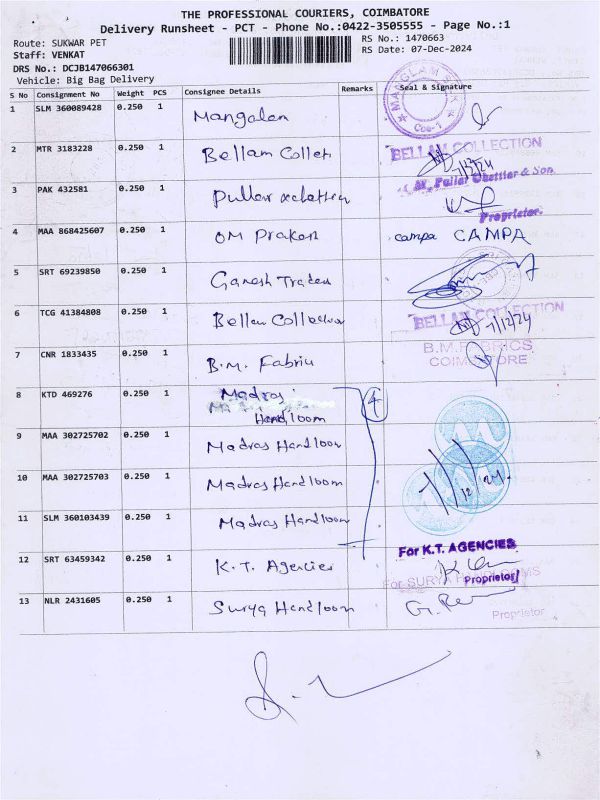 THE PROFESSIONAL COURIERS, COIMBATORE
Delivery Runsheet - PCT - Phone No.:0422-3505555 - Page No.:1
Route: SUKWAR PET
RS No.: 1470663
Staff: VENKAT
RS Date: 07-Dec-2024
DRS No.: DCJB147066301
Vehicle: Big Bag Delivery
S No Consignment No Weight PCS Consignee Details Remarks Seal & Signature
1 SLM 360089428 0.250 1 Mangalam
MANGLAM SILK
Coe-1
2 MTR 3183228 0.250 1 Bellam Collet
BELLAM COLLECTION
7/12/24
3 PAK 432581 0.250 1 Pullar
Chettiar & Son
Proprietor.
4 MAA 868425607 0.250 1 OM Prakash campa CAMPA
5 SRT 69239850 0.250 1 Ganesh Traders
6 TCG 41384808 0.250 1 Bellam Collection
BELLAM COLLECTION
7/12/24
7 CNR 1833435 0.250 1 B.M. Fabric
B.M. FABRICS
COIMBATORE
8 KTD 469276 0.250 1 Madras
Handloom
4
9 MAA 302725702 0.250 1 Madras Handloom
10 MAA 302725703 0.250 1 Madras Handloom
7/12/24
11 SLM 360103439 0.250 1 Madras Handloom
For K.T. AGENCIES
12 SRT 63459342 0.250 1 K.T. Agencies
Proprietor
For SURYA HANDLOOMS
13 NLR 2431605 0.250 1 Surya Handloom
Proprietor